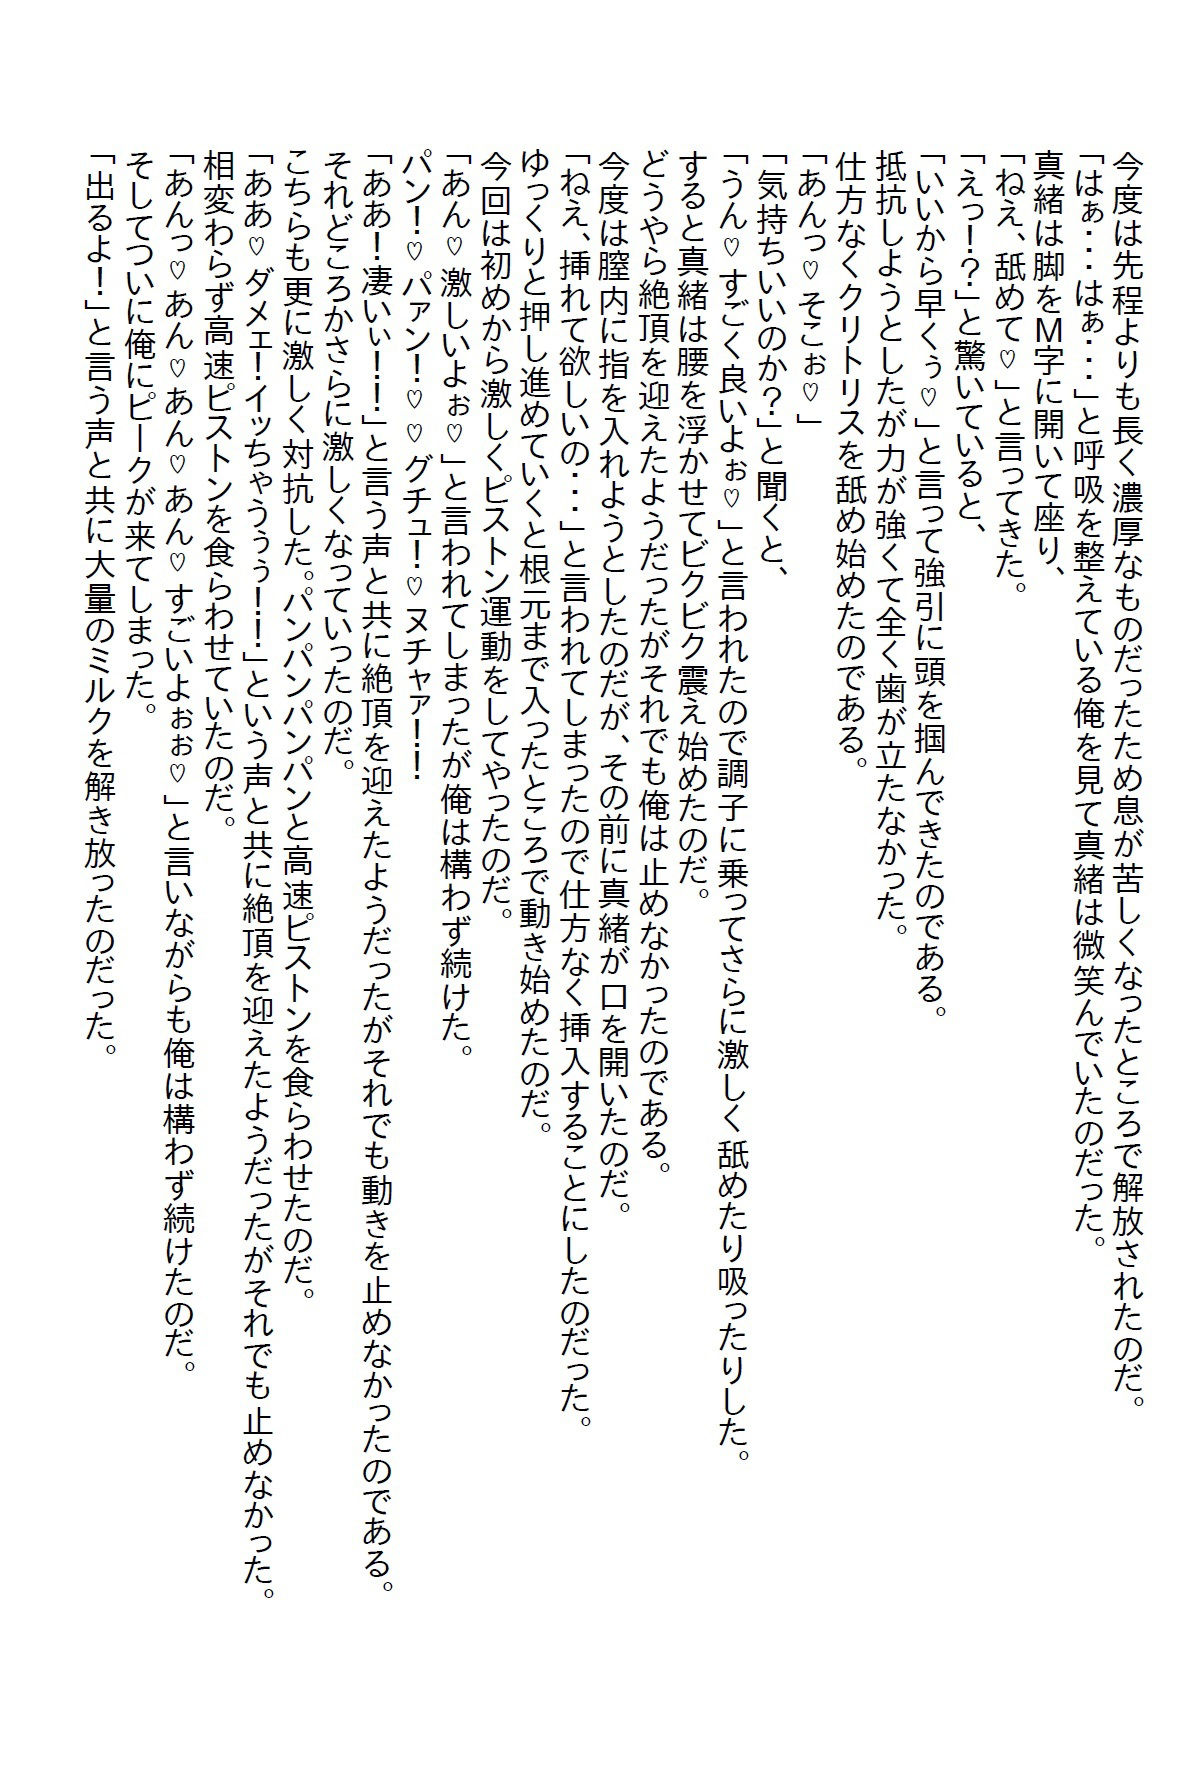 今度は先程よりも長く濃厚なものだったため息が苦しくなったところで解放されたのだ。
「はぁ・・・はぁ・・・」と呼吸を整えている俺を見て真緒は微笑んでいたのだった。
真緒は脚をM字に開いて座り、
「ねえ、舐めて♡」と言ってきた。
「えっ！？」と驚いていると、
「いいから早くぅ♡」と言って強引に頭を掴んできたのである。
抵抗しようとしたが力が強くて全く歯が立たなかった。
仕方なくクリトリスを舐め始めたのである。
「あんっ♡そこぉ♡」
「気持ちいいのか？」と聞くと、
「うん♡すごく良いよぉ♡」と言われたので調子に乗ってさらに激しく舐めたり吸ったりした。
すると真緒は腰を浮かせてビクビク震え始めたのだ。
どうやら絶頂を迎えたようだったがそれでも俺は止めなかったのである。
今度は膣内に指を入れようとしたのだが、その前に真緒が口を開いたのだ。
「ねえ、挿れて欲しいの・・・」と言われてしまったので仕方なく挿入することにしたのだった。
ゆっくりと押し進めていくと根元まで入ったところで動き始めたのだ。
今回は初めから激しくピストン運動をしてやったのだ。
「あん♡激しいよぉ♡」と言われてしまったが俺は構わず続けた。
パン！♡パァン！♡♡グチュ！♡ヌチャァ！！
「ああ！凄いぃ！！」と言う声と共に絶頂を迎えたようだったがそれでも動きを止めなかったのである。
それどころかさらに激しくなっていったのだ。
こちらも更に激しく対抗した。パンパンパンパンと高速ピストンを食らわせたのだ。
「ああ♡ダメェ！イッちゃうぅぅ！！」という声と共に絶頂を迎えたようだったがそれでも止めなかった。
相変わらず高速ピストンを食らわせていたのだ。
「あんっ♡あん♡あん♡あん♡すごいよぉぉ♡」と言いながらも俺は構わず続けたのだ。
そしてついに俺にピークが来てしまった。
「出るよ！」と言う声と共に大量のミルクを解き放ったのだった。